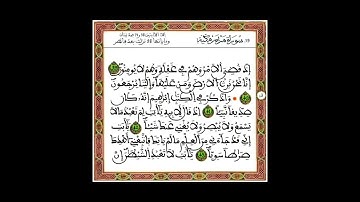 19 سورة مريم مكية
وءاياتها 98 نزلت بعد فاطر
إذ قضي الأمر وهم في غفلة وهم لا يومنون
إنا نحن نرث الأرض ومن عليها وإلينا يرجعون
واذكر في الكتب إبراهيم إنه كان
صديقا نبيئا إذ قال لأبيه يأبت لم تعبد ما لا
يسمع ولا يبصر ولا يغني عنك شيئا يأبت
إني قد جاءني من العلم ما لم ياتك فاتبعني أهدك
صرطا سويا يأبت لا تعبد الشيطن إن